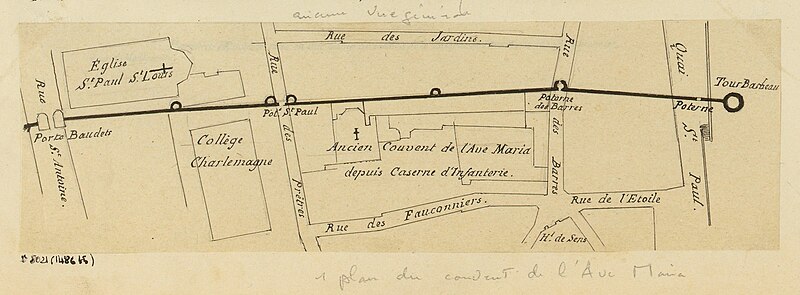 ancienne vue générale
Rue des Jardins.
Église
St Paul St Louis
Rue
St Antoine.
Porte Baudets
Collège
Charlemagne
Rue
des
Prêtres
Pot. St Paul
Ancien Couvent de l'Ave Maria
depuis Caserne d'Infanterie.
Rue des Fauconniers.
Rue
des
Barres
Poterne
des Barres
Rue de l'Etoile
Hl. de Sens
Quai
St
Paul.
Poterne
Tour Barbeau
1 plan du couvent de l'Ave Maria